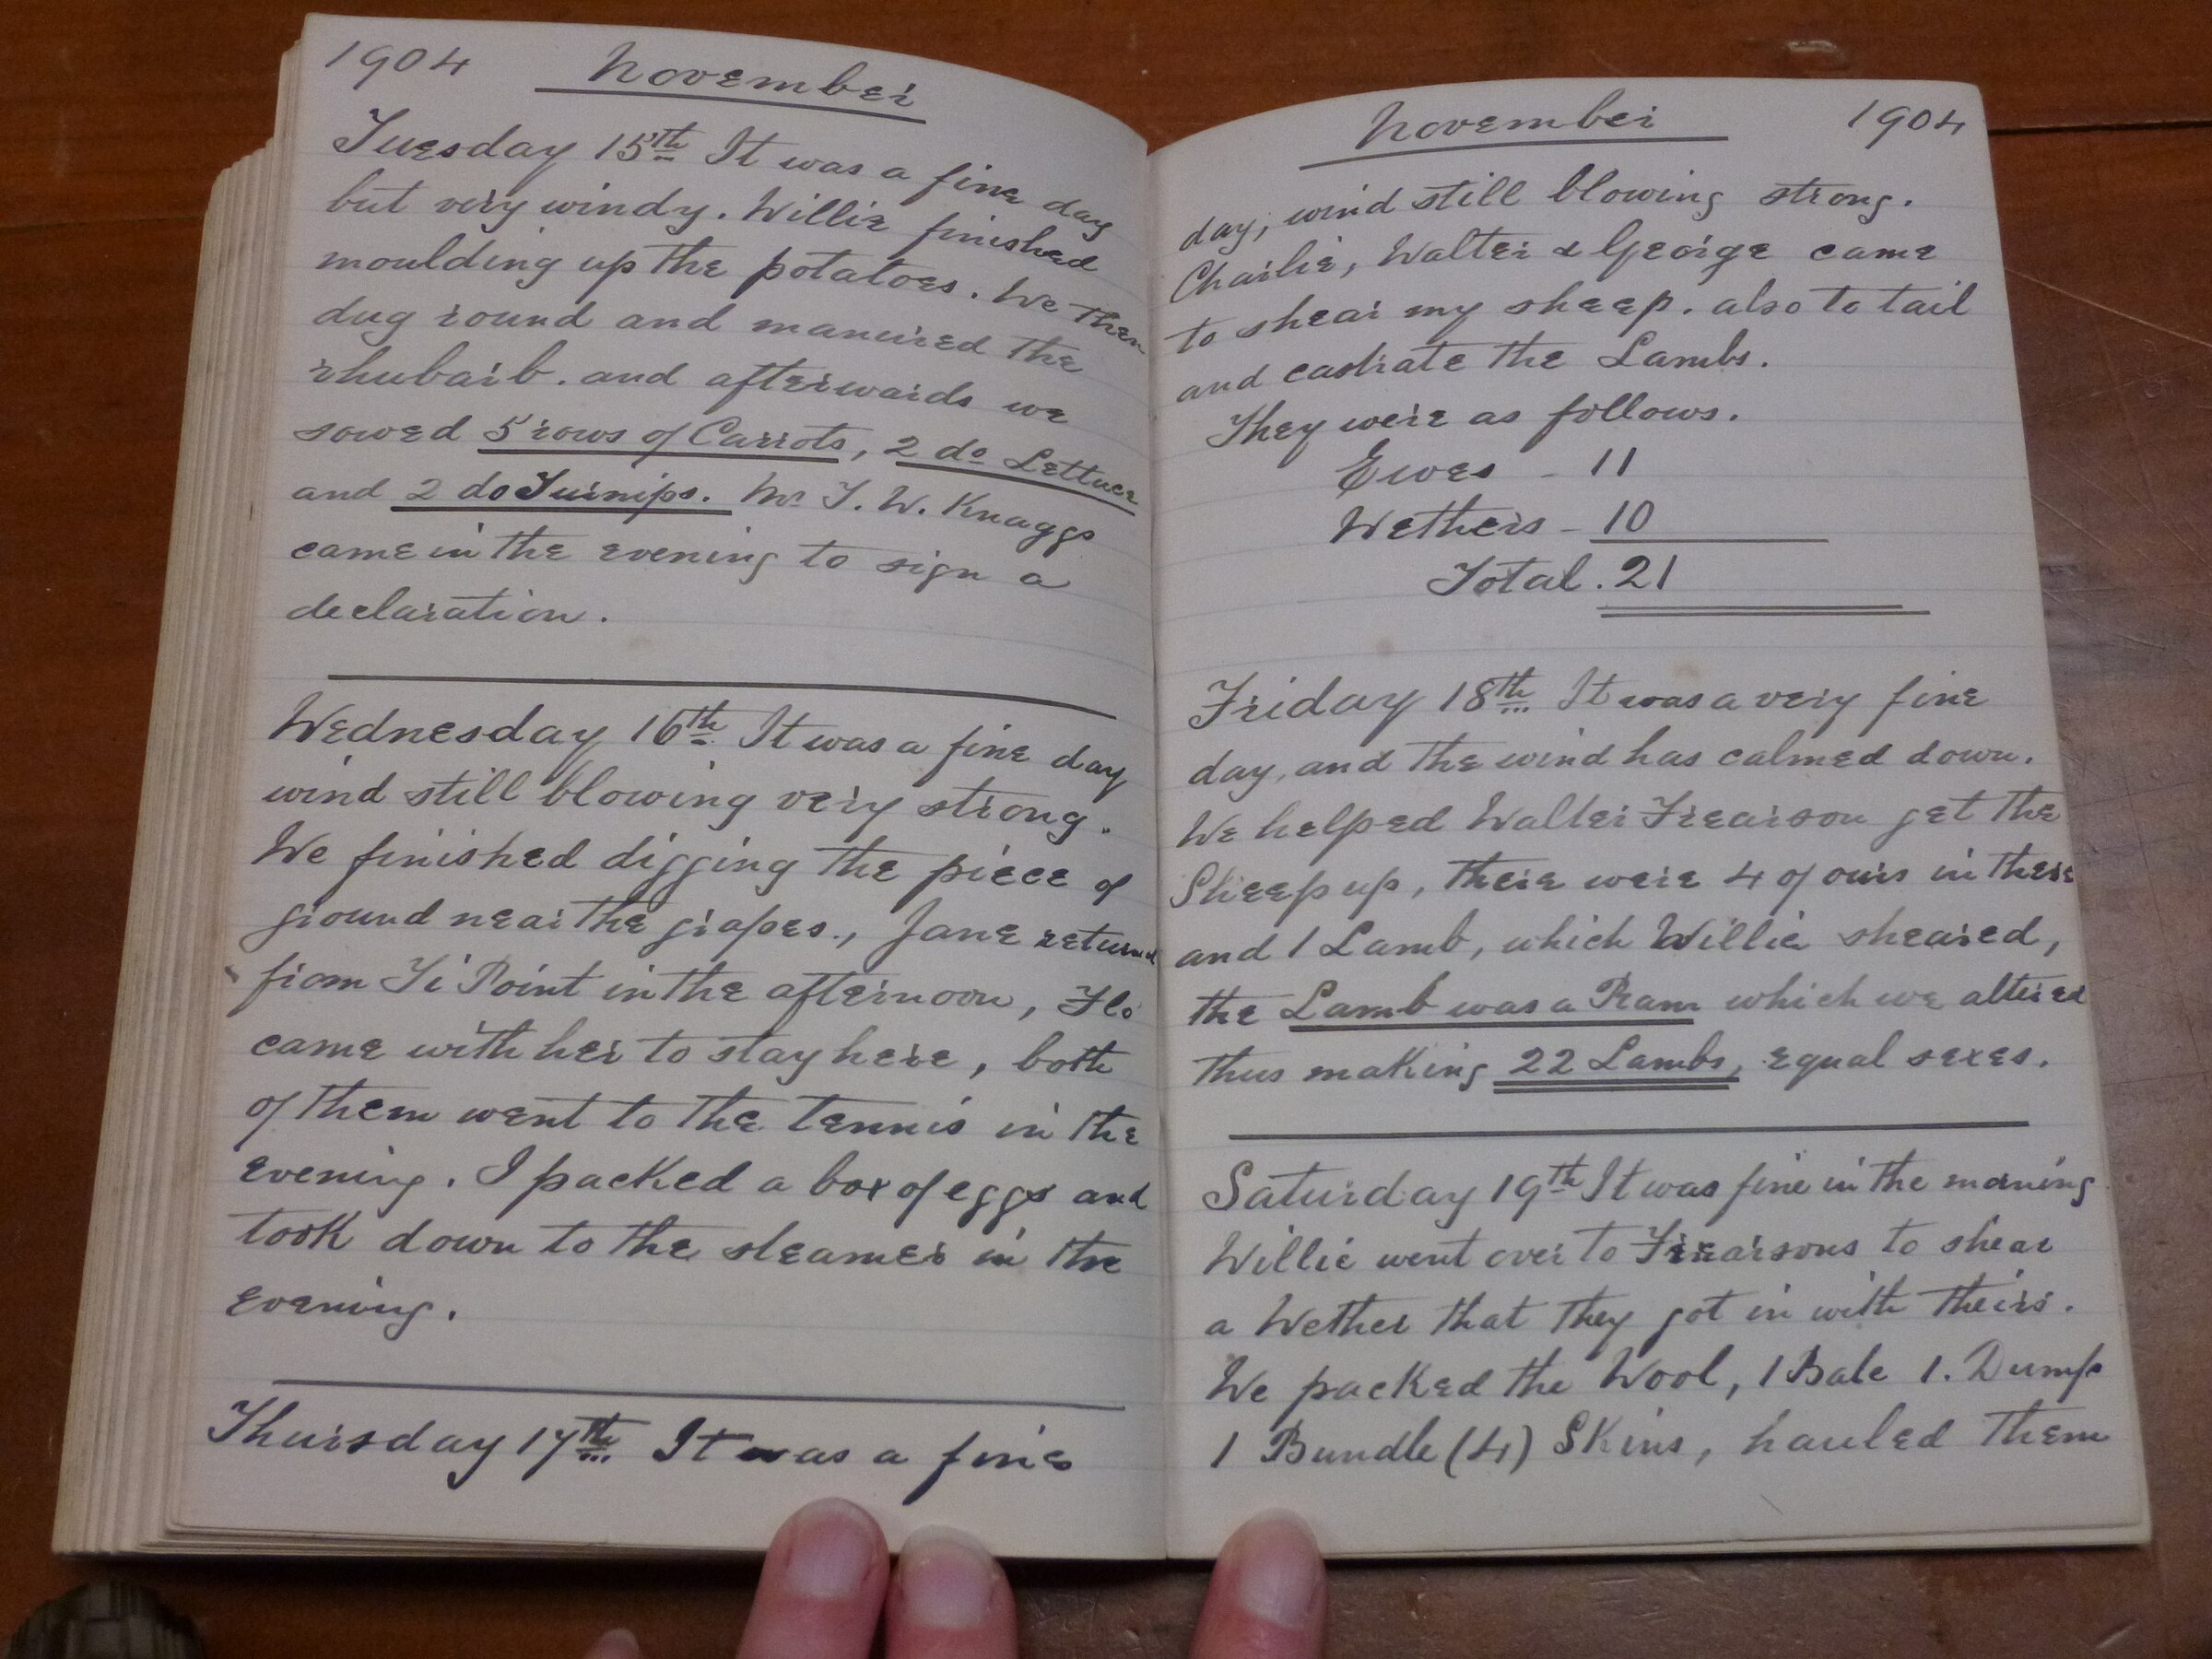 1904 November
Tuesday 15th It was a fine day
but very windy. Willie finished
moulding up the potatoes. We then
dug round and manured the
rhubarb. and afterwards we
sowed 5 rows of Carrots, 2 do Lettuce
and 2 do Turnips. Mr T. W. Knaggs
came in the evening to sign a
declaration.
Wednesday 16th It was a fine day
wind still blowing very strong.
We finished digging the piece of
ground near the grapes., Jane returned
from Ti Point in the afternoon, Flo
came with her to stay here, both
of them went to the tennis in the
evening. I packed a box of eggs and
took down to the steamer in the
evening.
Thursday 17th It was a fine
November 1904
day, wind still blowing strong.
Charlie, Walter & George came
to shear my sheep. also to tail
and castrate the Lambs.
They were as follows.
Ewes - 11
Wethers - 10
Total. 21
Friday 18th It was a very fine
day, and the wind has calmed down.
We helped Walter Frearson get the
Sheep up, there were 4 of ours in there
and 1 Lamb, which Willie sheared,
the Lamb was a Ram which we altered
thus making 22 Lambs, equal sexes.
Saturday 19th It was fine in the morning
Willie went over to Frearsons to shear
a Wether that they got in with theirs.
We packed the Wool, 1 Bale 1. Dump
1 Bundle (4) Skins, hauled them